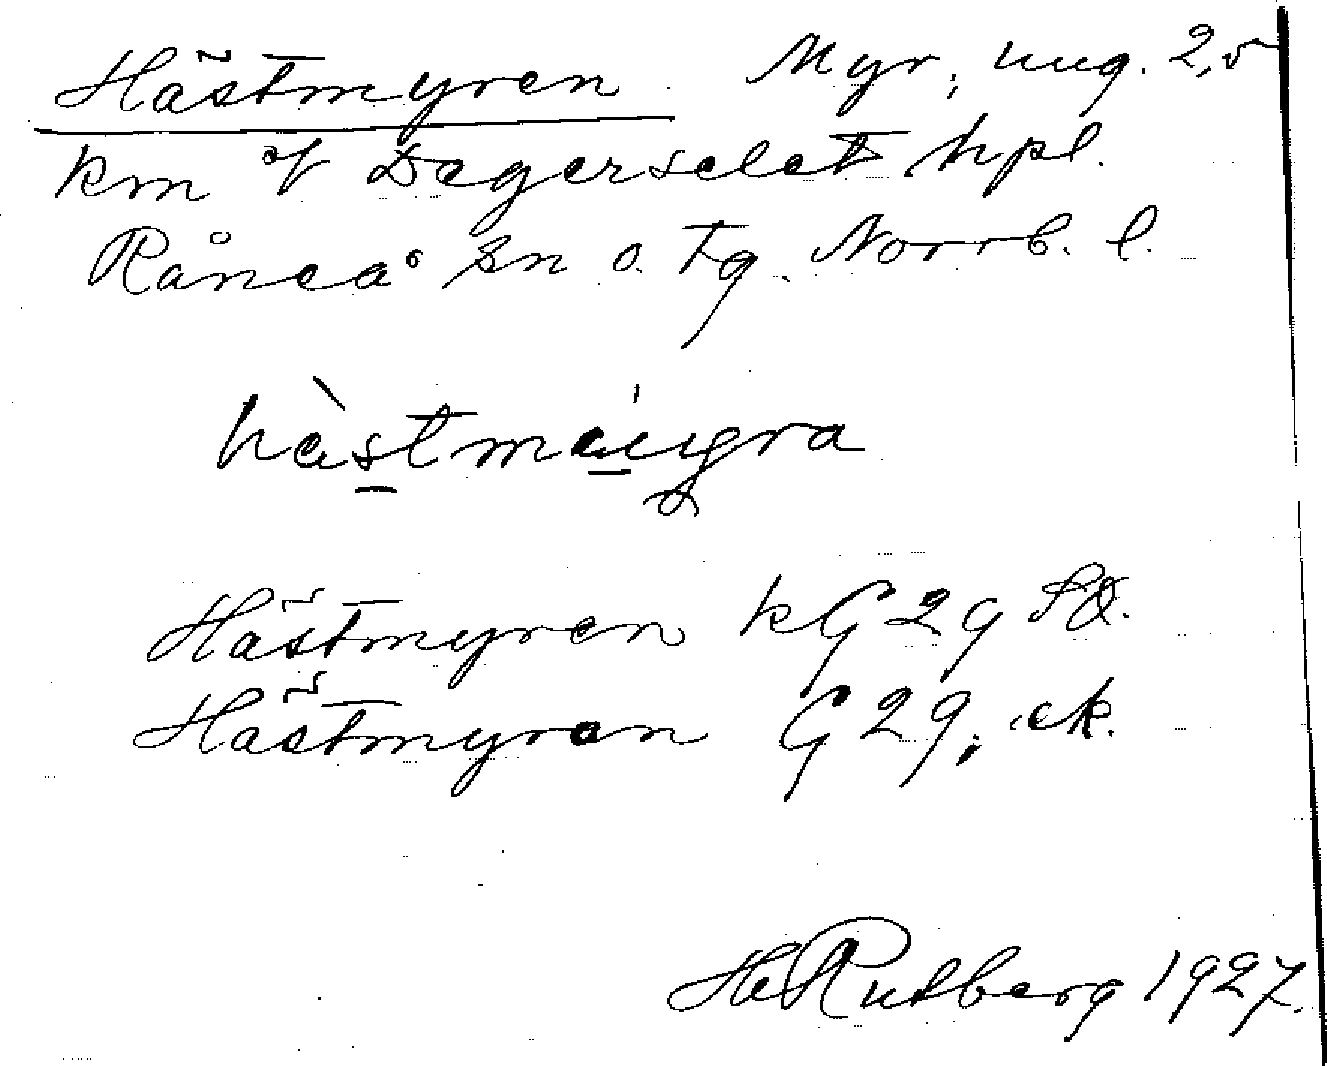 Hästmyren. Myr, ung. 2,5
km of Degerselet hpl.
Råneå sn o. tg. Norrb. l.
hàstmáiyra
Hästmyren kG 29
Hästmyran G 29; ek.
He Rutberg 1927.